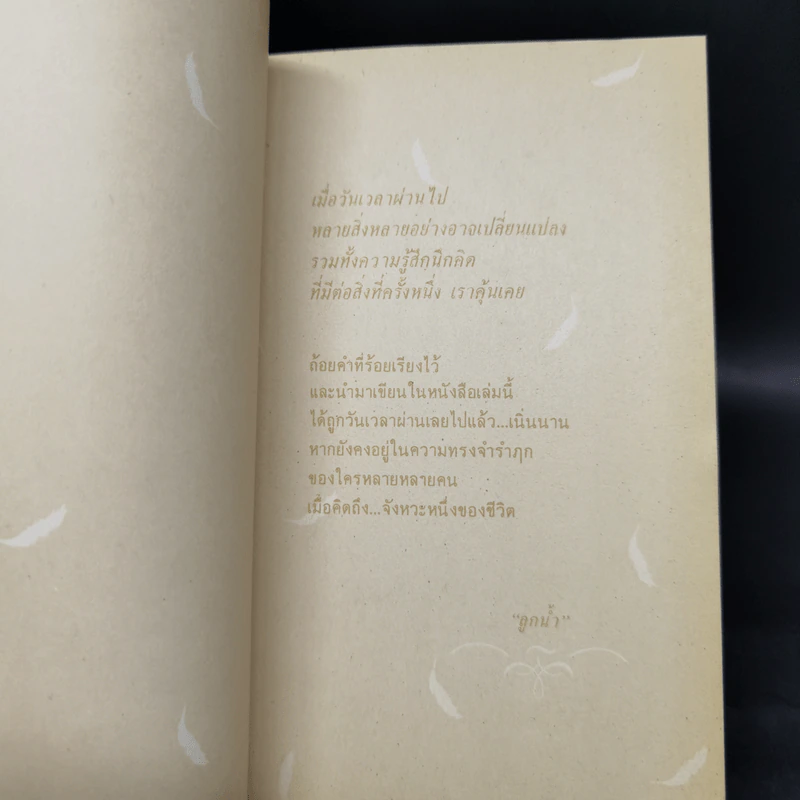 เมื่อวันเวลาผ่านไป
หลายสิ่งหลายอย่างอาจเปลี่ยนแปลง
รวมทั้งความรู้สึกนึกคิด
ที่มีต่อสิ่งที่ครั้งหนึ่ง เราคุ้นเคย
ถ้อยคำที่ร้อยเรียงไว้
และนำมาเขียนในหนังสือเล่มนี้
ได้ถูกวันเวลาผ่านเลยไปแล้ว...เนิ่นนาน
หากยังคงอยู่ในความทรงจำรำฦก
ของใครหลายหลายคน
เมื่อคิดถึง...จังหวะหนึ่งของชีวิต
"ลูกน้ำ"